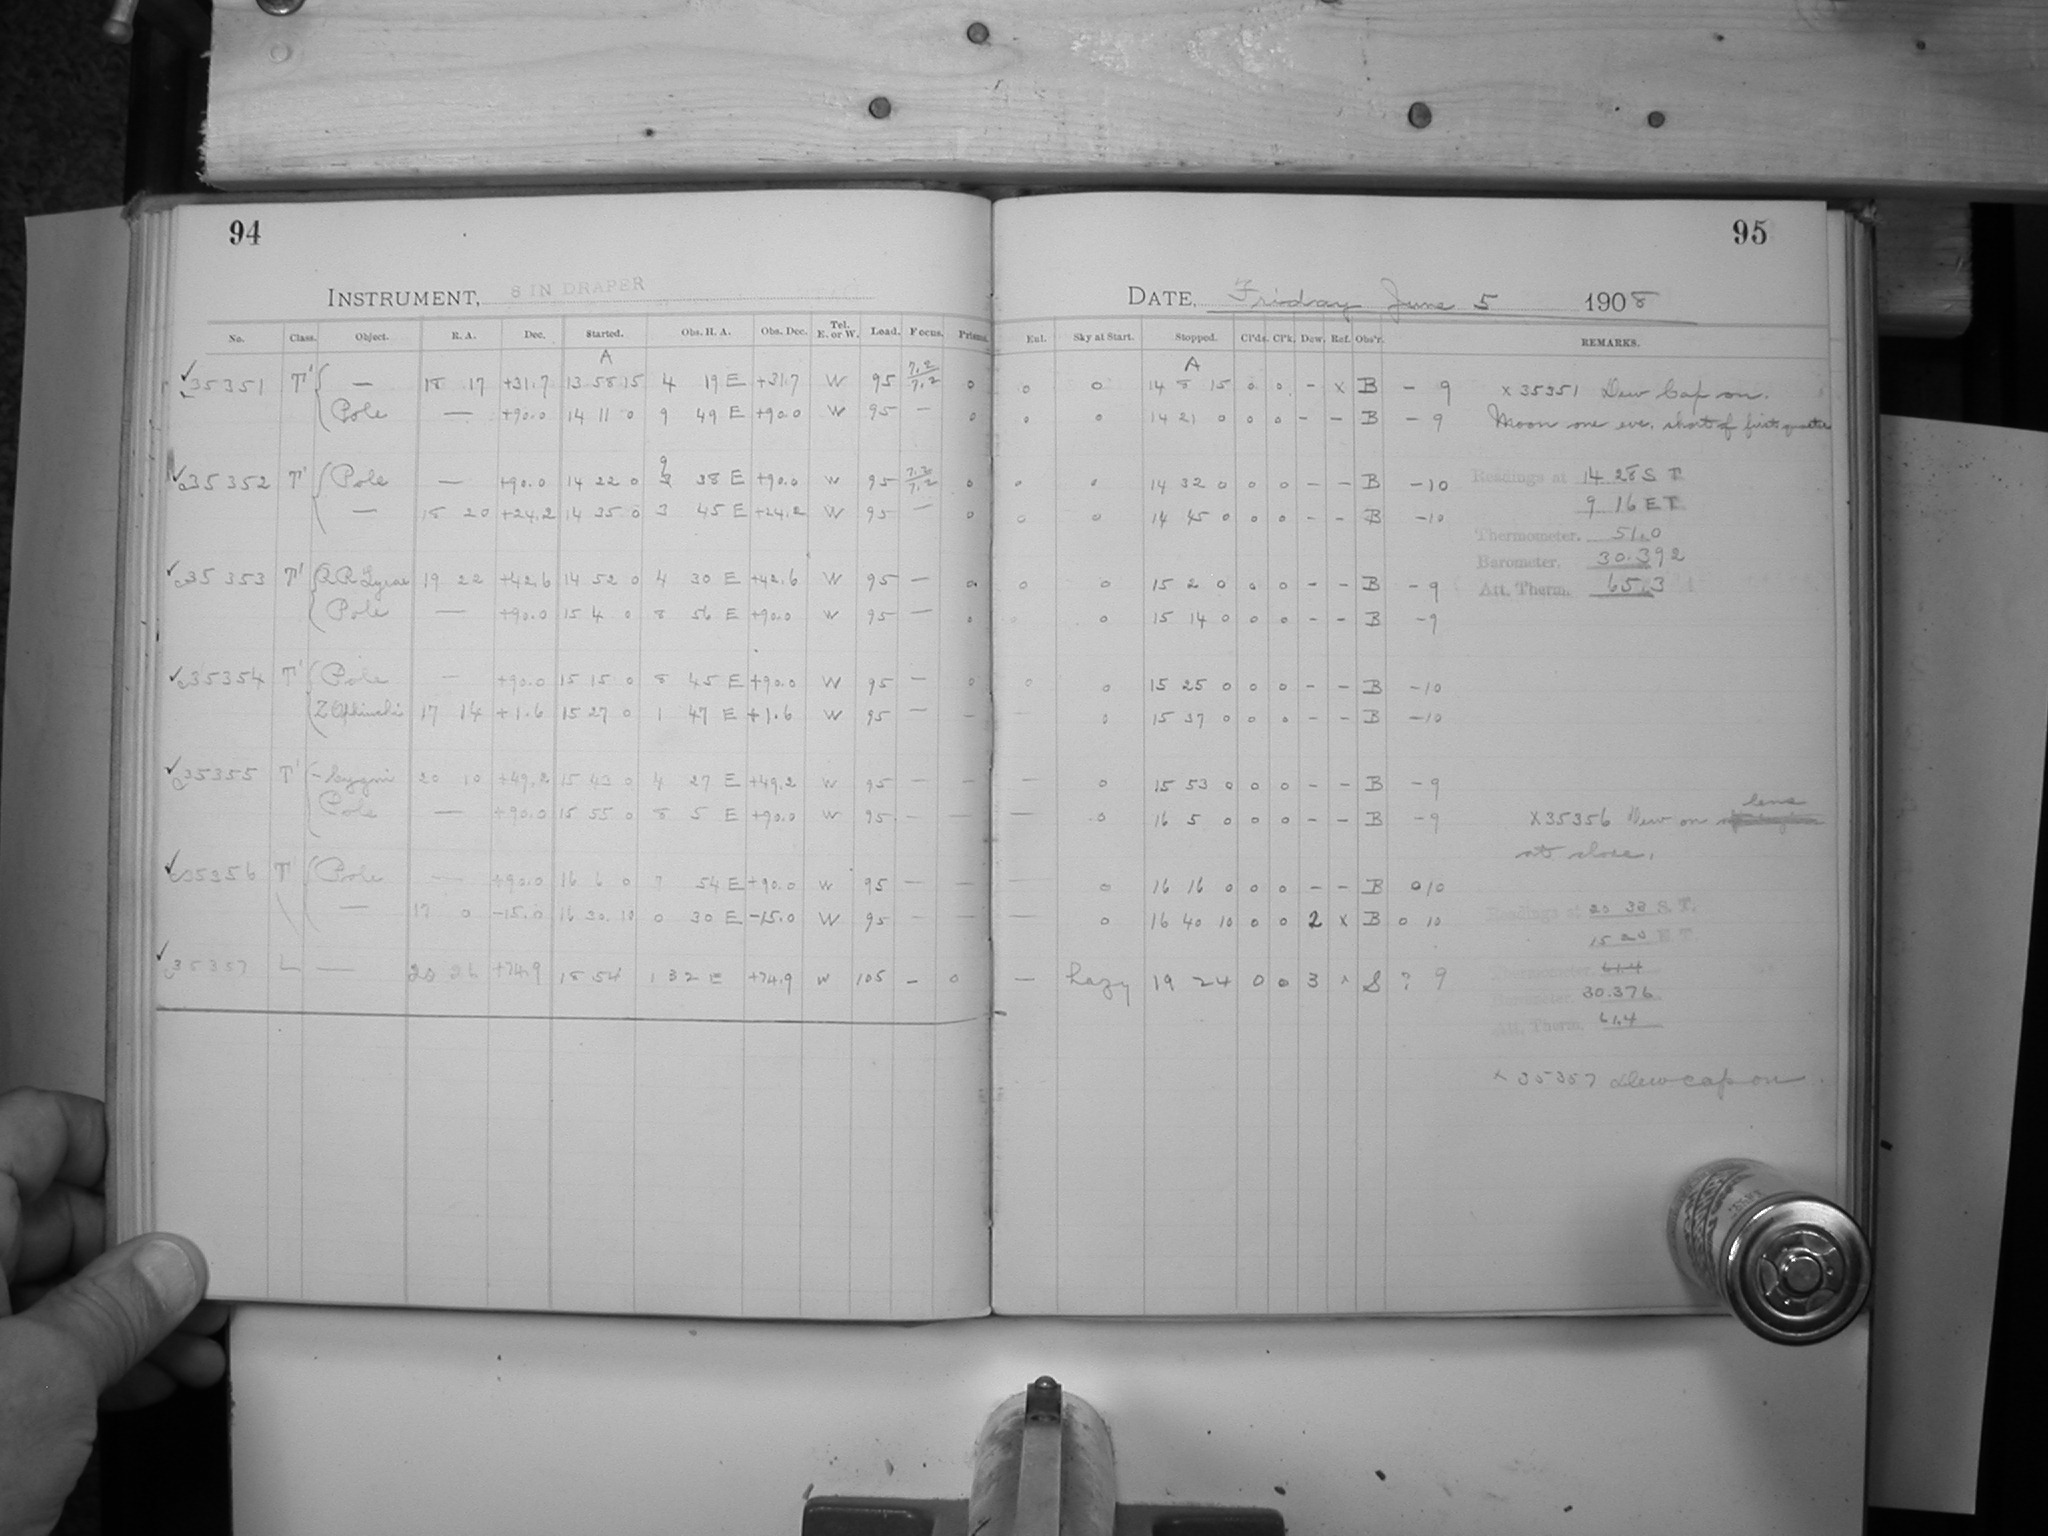 94
INSTRUMENT, 8 IN DRAPER
No. Class. Object. R. A. Dec. Started. Obs. H. A. Obs. Dec. Tel. E. or W. Load. Focus. Prisms.
A
35351 T' { — 18 17 +31.7 13 58 15 4 19 E +31.7 W 95 7.2/7.2 0
Pole — +90.0 14 11 0 9 49 E +90.0 W 95 — 0
c35352 T' { Pole — +90.0 14 22 0 9 38 E +90.0 W 95 7.3/7.2 0
— 18 20 +24.2 14 35 0 3 45 E +24.2 W 95 — 0
c35353 T' { RR Lyrae 19 22 +42.6 14 52 0 4 30 E +42.6 W 95 — 0
Pole — +90.0 15 4 0 8 56 E +90.0 W 95 — 0
c35354 T' { Pole — +90.0 15 15 0 8 45 E +90.0 W 95 — 0
Z Ophiuchi 17 14 +1.6 15 27 0 1 47 E +1.6 W 95 — —
c35355 T' { — Cygni 20 10 +49.2 15 43 0 4 27 E +49.2 W 95 — —
Pole — +90.0 15 55 0 8 5 E +90.0 W 95 — —
c35356 T' { Pole — +90.0 16 6 0 7 54 E +90.0 W 95 — —
— 17 0 -15.0 16 30 10 0 30 E -15.0 W 95 — —
c35357 L — 20 26 +74.9 18 54 1 32 E +74.9 W 105 — 0
95
DATE, Friday June 5 1908
Enl. Sky at Start. Stopped. Cl'ds. Cl'k. Dew. Ref. Obs'r. REMARKS.
A
0 0 14 8 15 0 0 - x B - 9 x 35351 Dew Cap on.
0 0 14 21 0 0 0 - - B - 9 Moon one eve. short of first quarter
0 0 14 32 0 0 0 - - B - 10 Readings at 14 28 S T
9 16 E T
0 0 14 45 0 0 0 - - B - 10
Thermometer. 51.0
Barometer. 30.392
0 0 15 2 0 0 0 - - B - 9 Att. Therm. 65.3
0 0 15 14 0 0 0 - - B - 9
0 0 15 25 0 0 0 - - B - 10
— 0 15 37 0 0 0 - - B - 10
— 0 15 53 0 0 0 - - B - 9
— 0 16 5 0 0 0 - - B - 9 X 35356 Dew on lens
at close.
— 0 16 16 0 0 0 - - B 0 10
— 0 16 40 10 0 0 2 x B 0 10 Readings at 20 33 S. T.
15 20 E. T.
— hazy 19 24 0 0 3 x S ? 9 Thermometer. 61.4
Barometer. 30.376
Att. Therm. 61.4
x 35357 Dew cap on